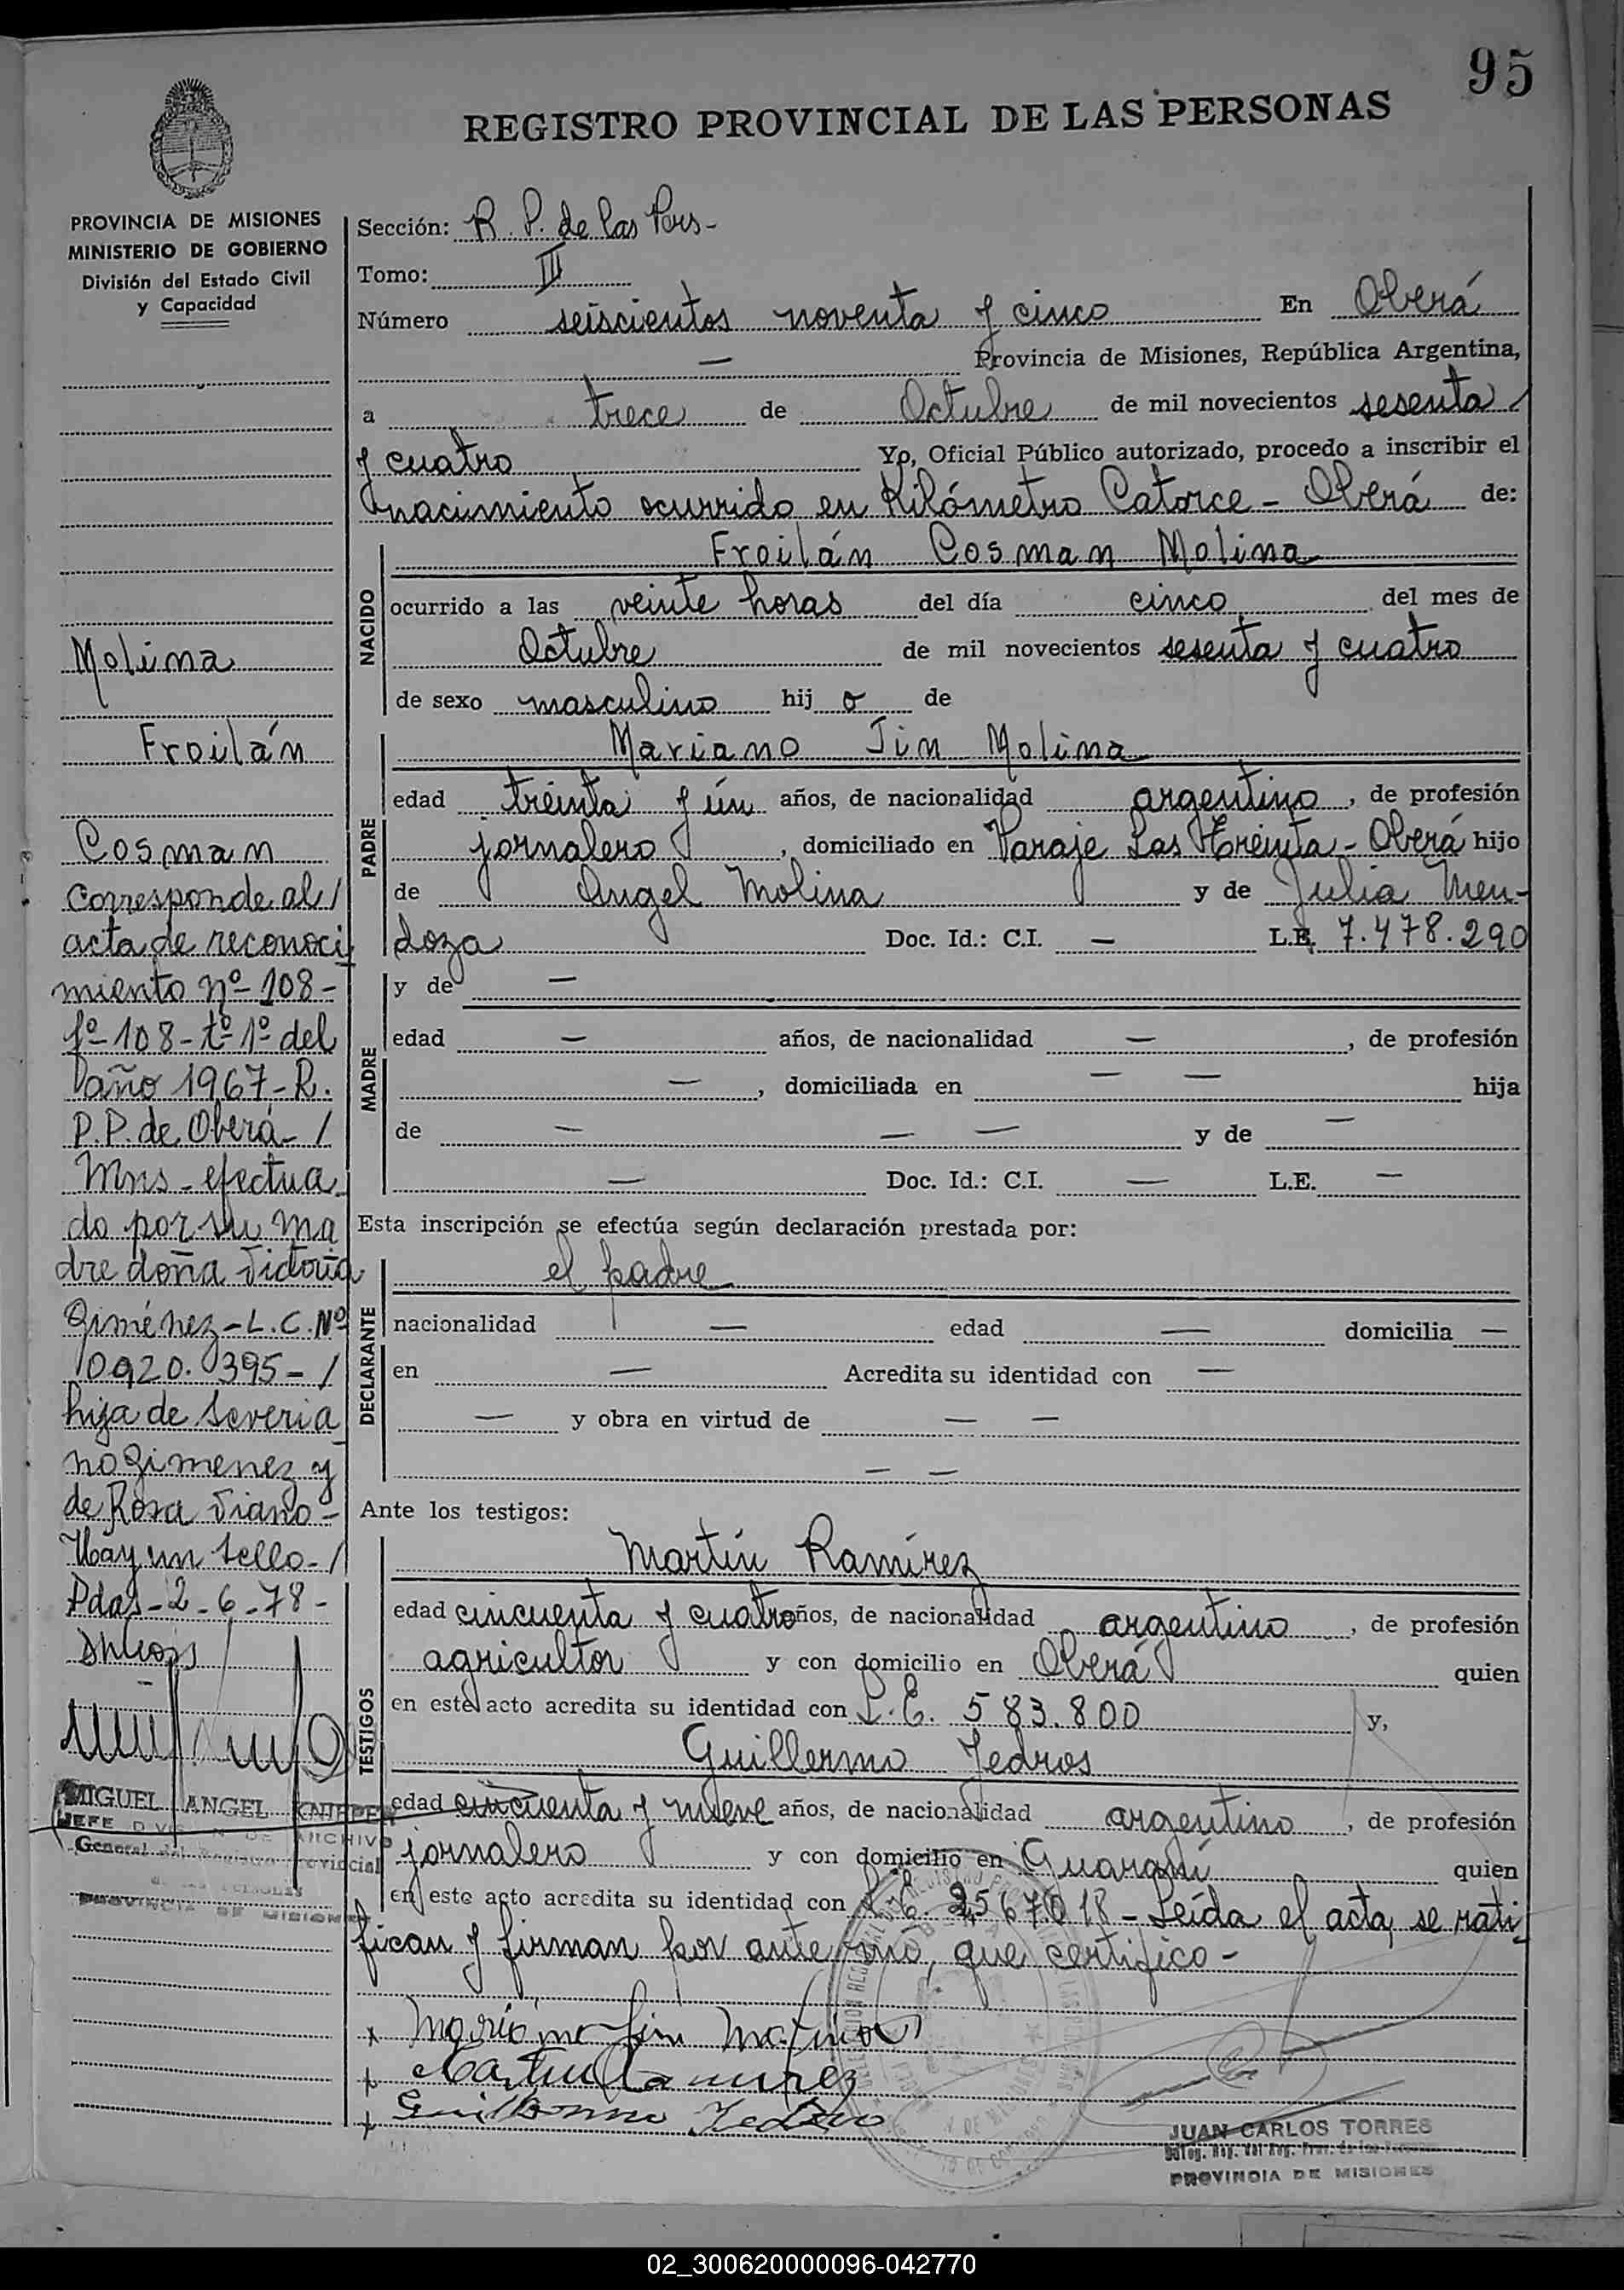 95
REGISTRO PROVINCIAL DE LAS PERSONAS
PROVINCIA DE MISIONES
MINISTERIO DE GOBIERNO
División del Estado Civil
y Capacidad
Molina
Froilán
Cosman
Corresponde al/
acta de reconoci
miento nº 108-
fº-108-tº-1º del
año 1967-R.
P.P. de Oberá-/
Mns-efectua
do por su ma
dre doña Victoria
Giménez-L.C.Nº
0920.395-/
hija de Severia
no Gimenez y
de Rosa Viano-
Hay un sello-/
Pdas-2-6-78-
MIGUEL ANGEL
JEFE DIVISIÓN DE ARCHIVO
General del Registro Provincial
de las Personas
PROVINCIA DE MISIONES
Sección: R. P. de las Pers-
Tomo: III
Número seiscientos noventa y cinco En Oberá
— Provincia de Misiones, República Argentina,
a trece de Octubre de mil novecientos sesenta
y cuatro Yo, Oficial Público autorizado, procedo a inscribir el
nacimiento ocurrido en Kilómetro Catorce - Oberá de:
NACIDO
Froilán Cosman Molina
ocurrido a las veinte horas del día cinco del mes de
Octubre de mil novecientos sesenta y cuatro
de sexo masculino hij o de
PADRE
Mariano Jin Molina
edad treinta y un años, de nacionalidad argentino, de profesión
jornalero, domiciliado en Paraje Las Treinta - Oberá hijo
de Angel Molina y de Julia Men-
doza Doc. Id.: C.I. — L.E. 7.478.290
MADRE
y de —
edad — años, de nacionalidad —, de profesión
—, domiciliada en — — hija
de — — — y de —
— Doc. Id.: C.I. — L.E. —
Esta inscripción se efectúa según declaración prestada por:
DECLARANTE
el padre
nacionalidad — edad — domicilia —
en — Acredita su identidad con —
— y obra en virtud de — —
— —
Ante los testigos:
TESTIGOS
Martín Ramírez
edad cincuenta y cuatro años, de nacionalidad argentino, de profesión
agricultor y con domicilio en Oberá quien
en este acto acredita su identidad con L.E. 583.800 y,
Guillermo Jedros
edad cincuenta y nueve años, de nacionalidad argentino, de profesión
jornalero y con domicilio en Guaraní quien
en este acto acredita su identidad con - Leída el acta, se rati-
fican y firman por ante mi, que certifico-
x Mariano Jin Molina
x Martin Ramirez
x Guillermo
JUAN CARLOS TORRES
PROVINCIA DE MISIONES
02_300620000096-042770